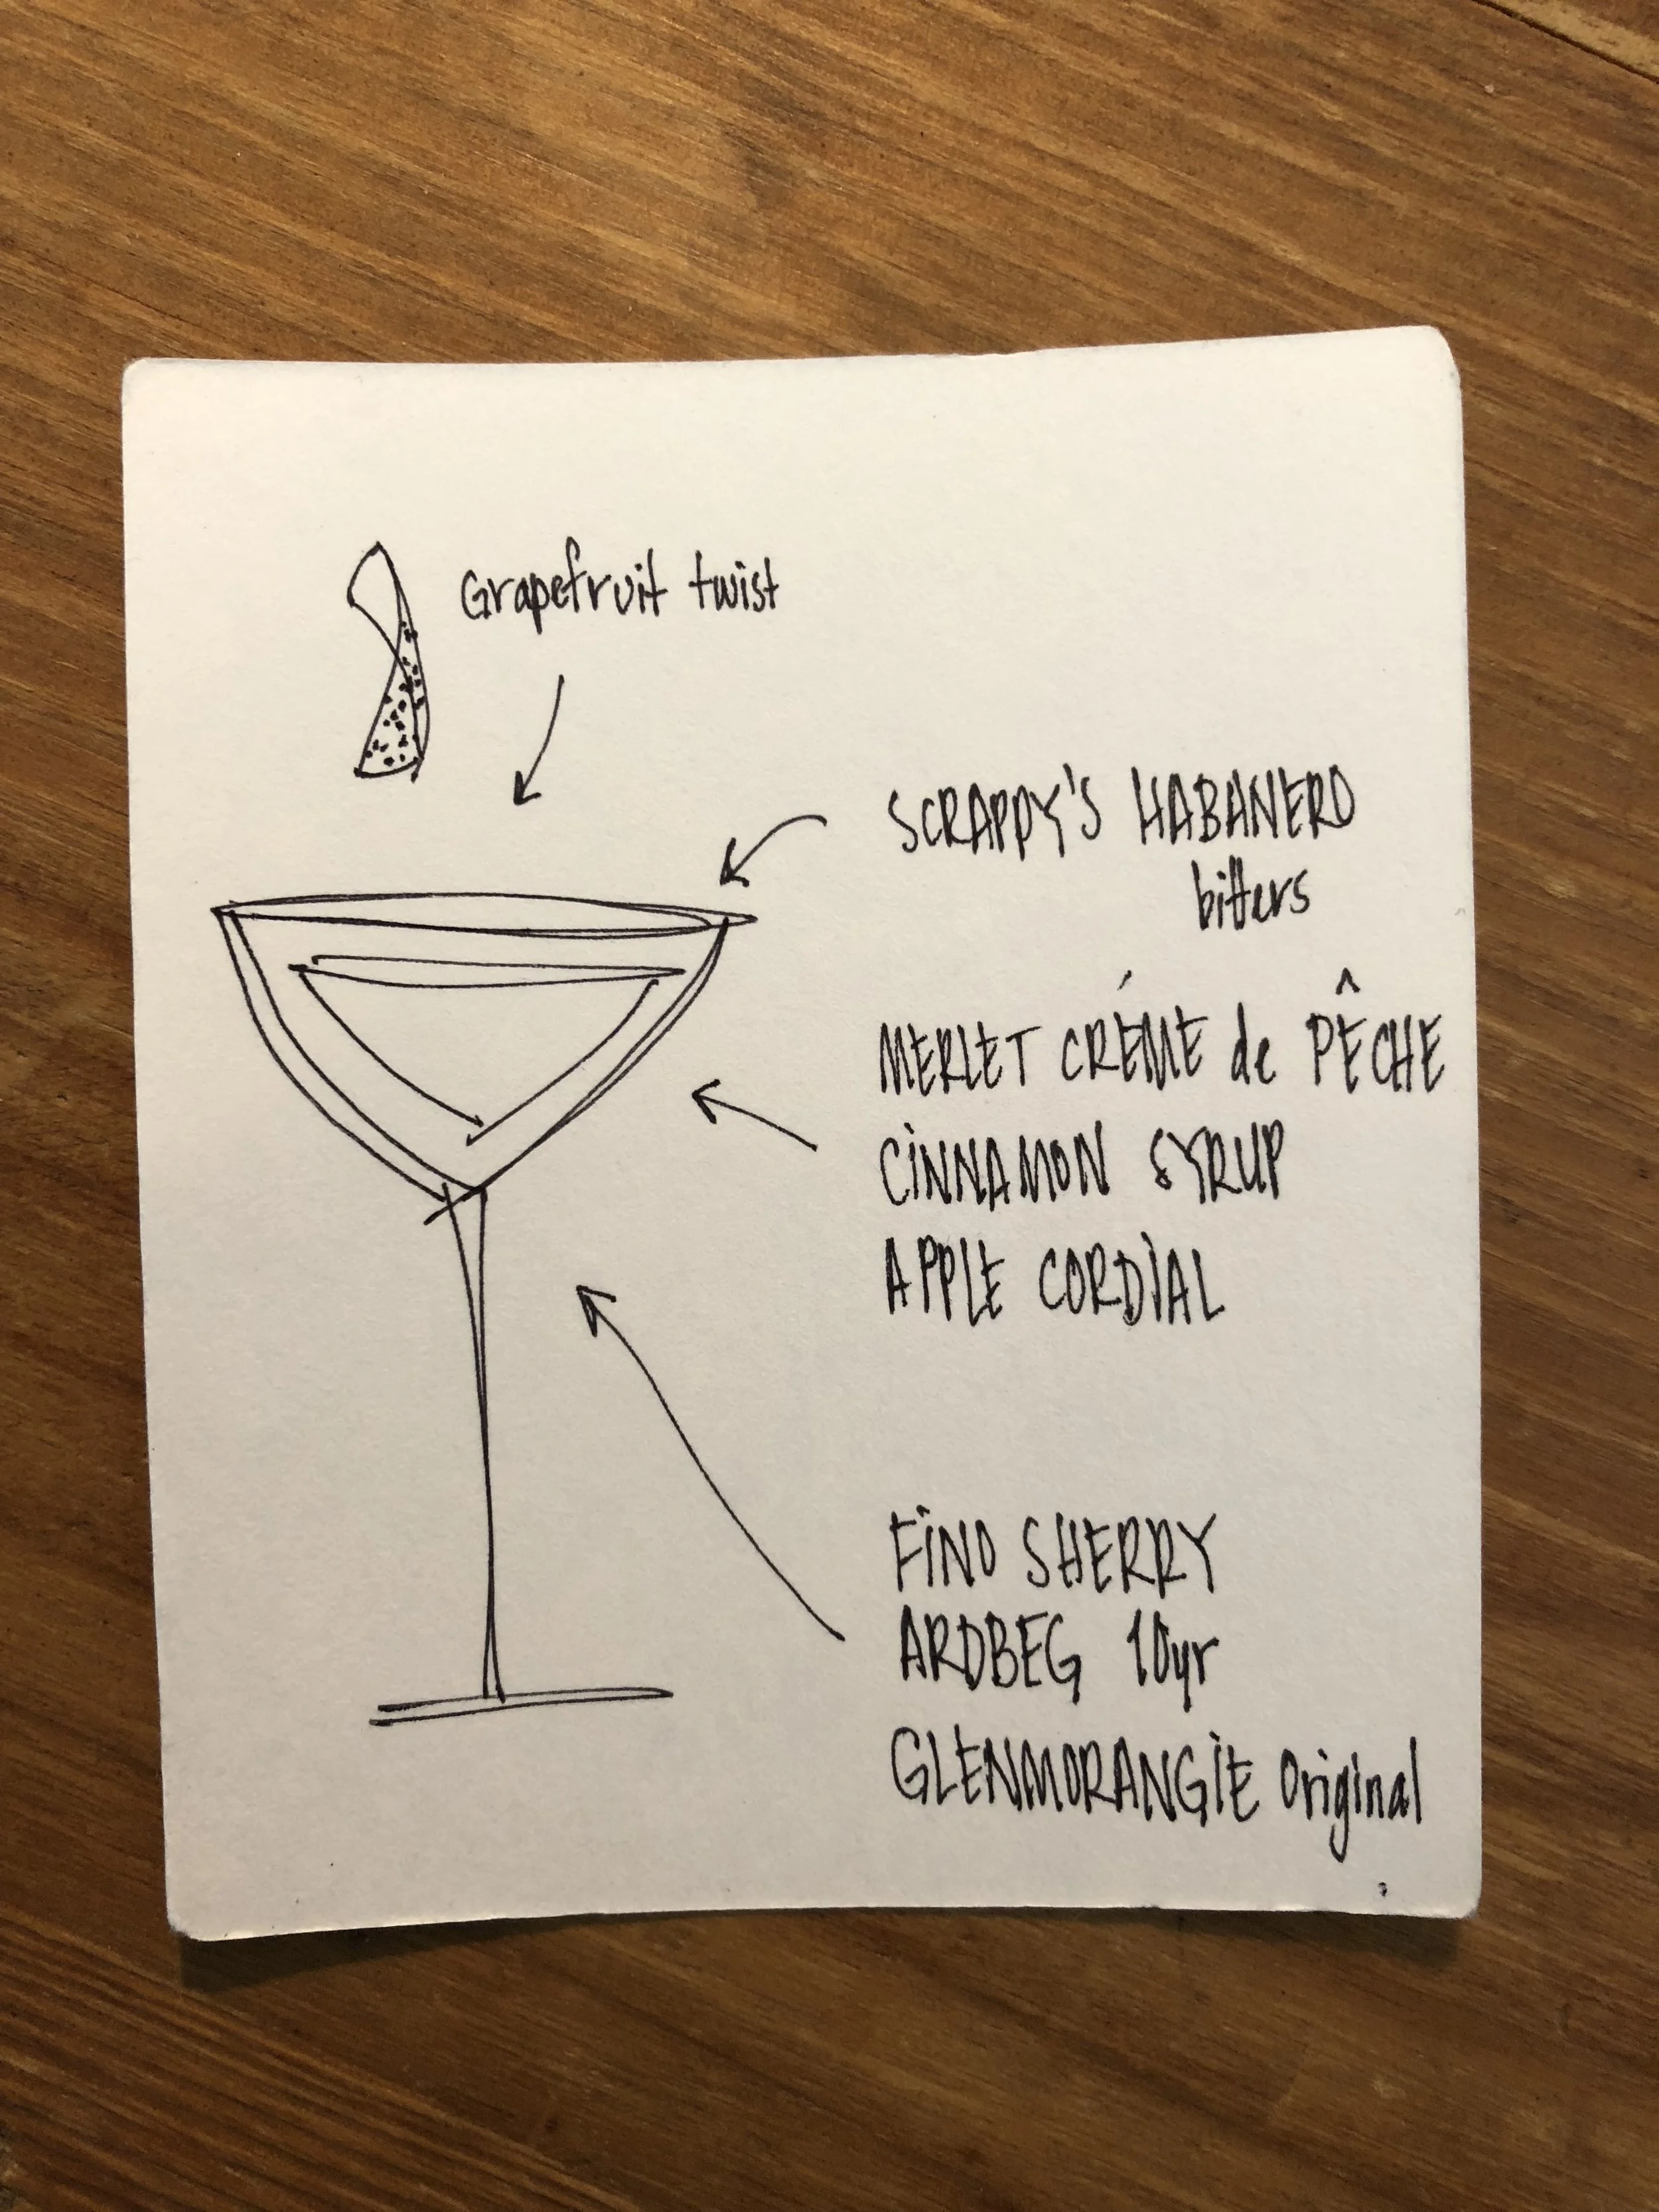 Grapefruit twist
SCRAPPY'S HABANERO
bitters
MERLET CRÉME de PÊCHE
CINNAMON SYRUP
APPLE CORDIAL
FINO SHERRY
ARDBEG 10yr
GLENMORANGIE Original